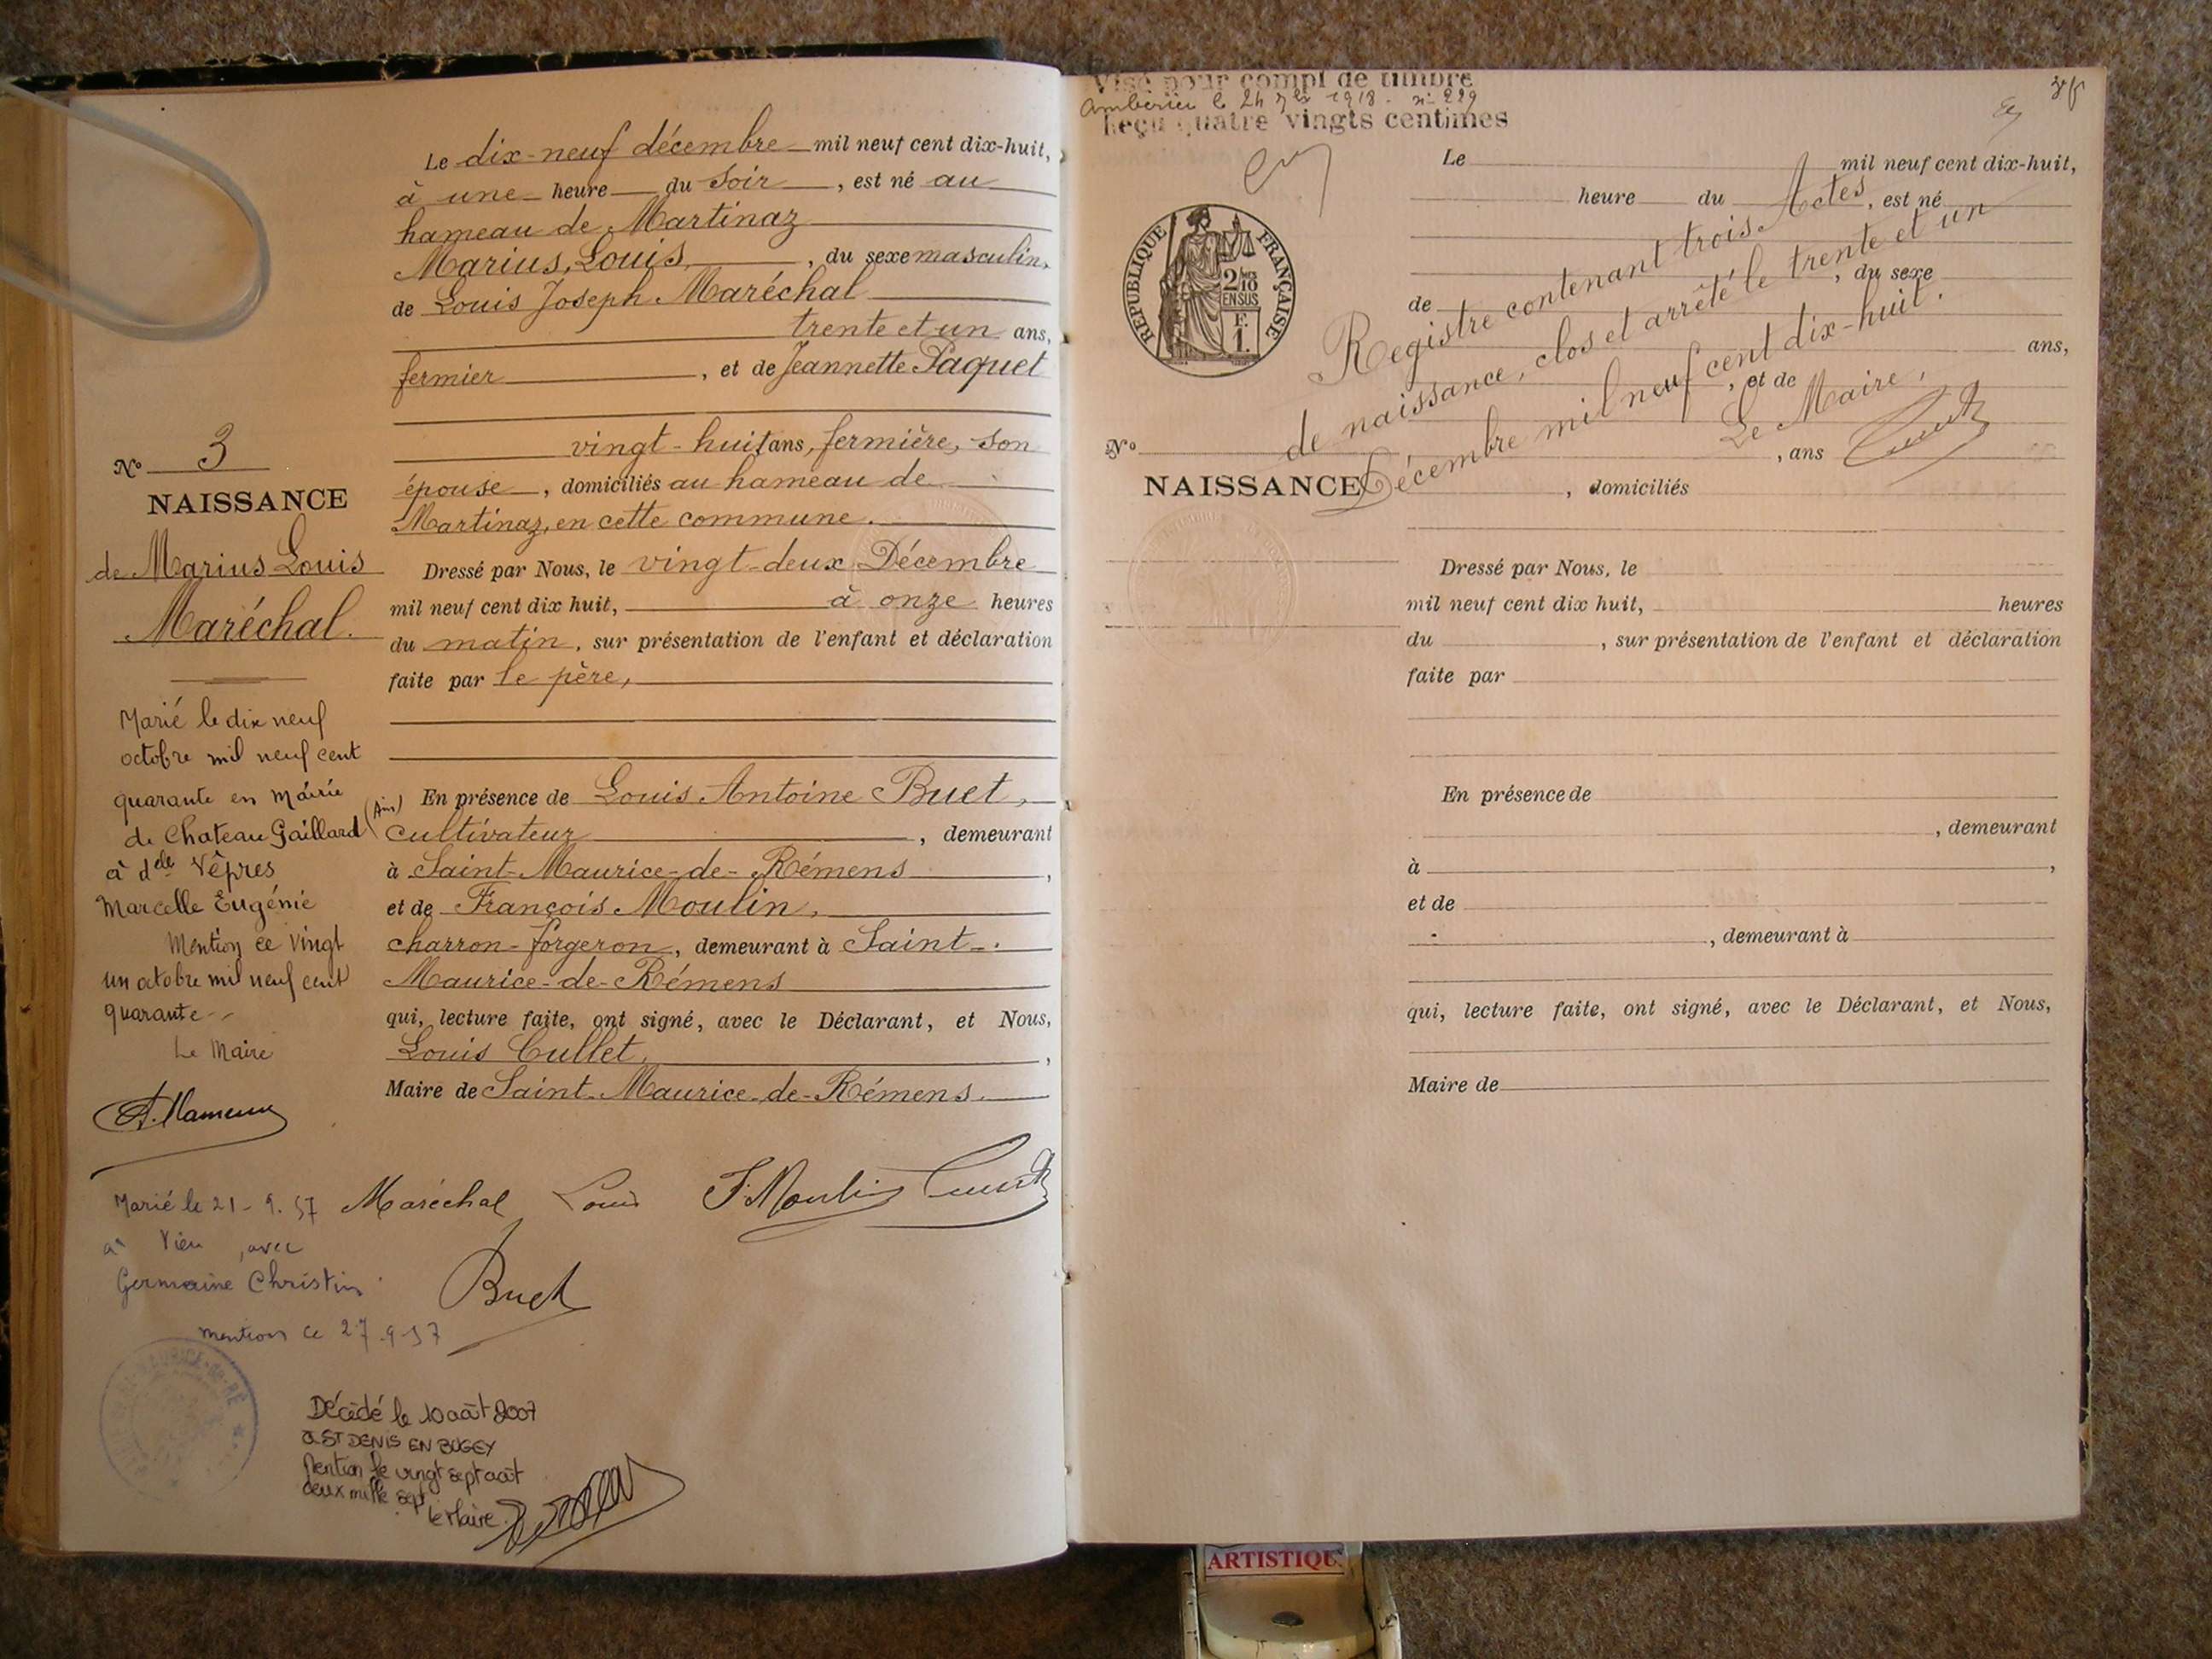 Le dix-neuf décembre mil neuf cent dix-huit,
à une heure du soir, est né au
hameau de Martinaz
Marius, Louis, du sexe masculin,
de Louis Joseph Maréchal
trente et un ans,
fermier, et de Jeannette Paquet
vingt-huit ans, fermière, son
épouse, domiciliés au hameau de
Martinaz, en cette commune.
Dressé par Nous, le vingt-deux Décembre
mil neuf cent dix huit, à onze heures
du matin, sur présentation de l'enfant et déclaration
faite par le père,
En présence de Louis Antoine Buet,
cultivateur, demeurant
à Saint-Maurice-de-Rémens,
et de François Moulin,
charron-forgeron, demeurant à Saint-
Maurice-de-Rémens
qui, lecture faite, ont signé, avec le Déclarant, et Nous,
Louis Cullet,
Maire de Saint-Maurice-de-Rémens.
Maréchal Louis F. Moulin
Buet
No 3
NAISSANCE
de Marius Louis
Maréchal.
Marié le dix neuf
octobre mil neuf cent
quarante en mairie
de Chateau Gaillard (Ain)
à dlle Vêpres
Marcelle Eugénie
Mention ce vingt
un octobre mil neuf cent
quarante
Le Maire
Marié le 21-9.57
à Vieu, avec
Germaine Christin
mention ce 27-9-57
Décédé le 10 août 2007
à ST DENIS EN BUGEY
Mention le vingt sept août
deux mille sept
Le Maire
Visé pour compt de timbre
Amberieu le 24 7bre 1918. no 229
Reçu quatre vingts centimes
RÉPUBLIQUE FRANÇAISE
2/10
EN SUS
F.
1.
Le mil neuf cent dix-huit,
heure du, est né
de, du sexe
ans,
, et de
, ans
, domiciliés
Registre contenant trois Actes
de naissance, clos et arrêté le trente et un
Décembre mil neuf cent dix-huit.
Le Maire,
No
NAISSANCE
Dressé par Nous, le
mil neuf cent dix huit, heures
du, sur présentation de l'enfant et déclaration
faite par
En présence de
, demeurant
à,
et de
, demeurant à
qui, lecture faite, ont signé, avec le Déclarant, et Nous,
Maire de
ARTISTIQU